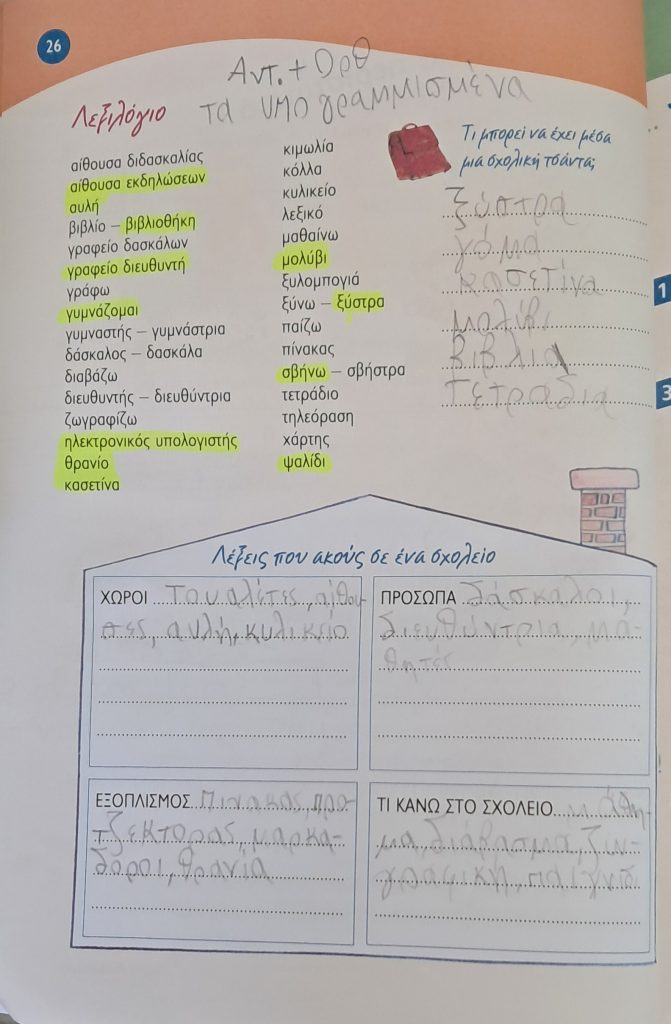 26
Αντ. + Ορθ
τα υπογραμμισμένα
Λεξιλόγιο
αίθουσα διδασκαλίας
αίθουσα εκδηλώσεων
αυλή
βιβλίο – βιβλιοθήκη
γραφείο δασκάλων
γραφείο διευθυντή
γράφω
γυμνάζομαι
γυμναστής – γυμνάστρια
δάσκαλος – δασκάλα
διαβάζω
διευθυντής – διευθύντρια
ζωγραφίζω
ηλεκτρονικός υπολογιστής
θρανίο
κασετίνα
κιμωλία
κόλλα
κυλικείο
λεξικό
μαθαίνω
μολύβι
ξυλομπογιά
ξύνω – ξύστρα
παίζω
πίνακας
σβήνω – σβήστρα
τετράδιο
τηλεόραση
χάρτης
ψαλίδι
Τι μπορεί να έχει μέσα
μια σχολική τσάντα;
ξύστρα
γόμα
κασετίνα
μολύβι
βιβλια
τετραδια
1
3
Λέξεις που ακούς σε ένα σχολείο
ΧΩΡΟΙ τουαλέτες, αίθου-
σες, αυλή, κυλικείο
ΠΡΟΣΩΠΑ δάσκαλοι,
διευθύντρια, μα-
θητές
ΕΞΟΠΛΙΣΜΟΣ Πινακας, προ-
τζεκτορας, μαρκα-
δόροι, θρανία
ΤΙ ΚΑΝΩ ΣΤΟ ΣΧΟΛΕΙΟ μάθη-
μα, διάβασμα, ζω-
γραφική, παιγνίδι